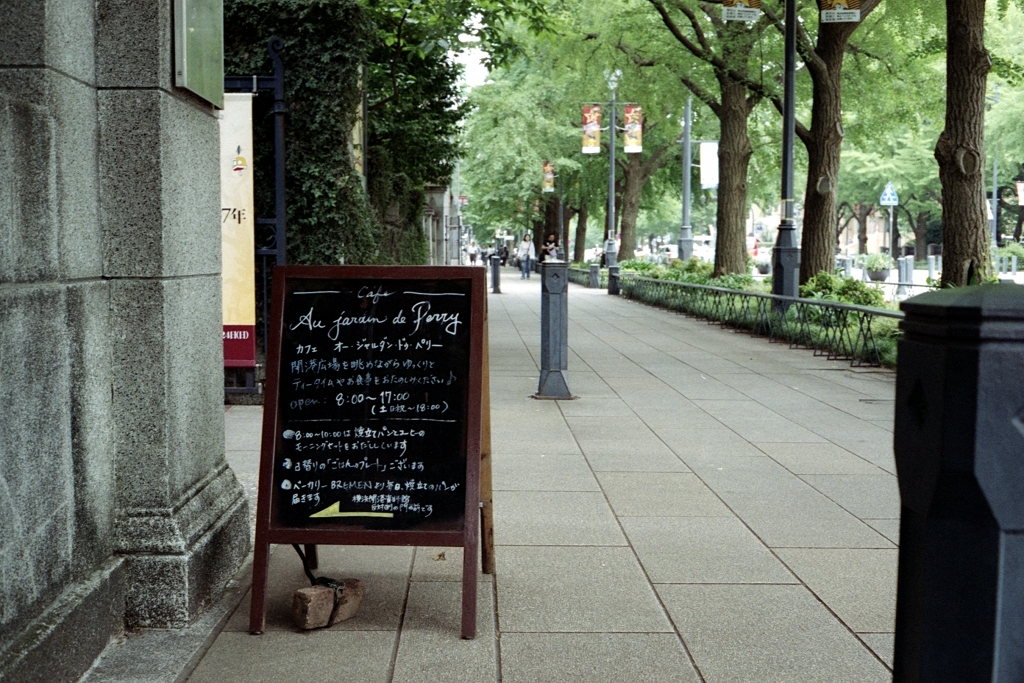 Cafe
Au jardin de Perry
カフェ オー・ジャルダン・ドゥ・ペリー
開港広場を眺めながらゆっくりと
ティータイムやお食事をおたのしみください♪
open: 8:00〜17:00
(土日祝〜18:00)
8:00〜10:00は 焼立てパンとコーヒーの
モーニングセットをおだししています
日替りの「ごはんのプレート」ございます
ベーカリー BREMEN より毎日、焼立てのパンが
届きます
横浜開港資料館
の門の前です
7年
24日(日)